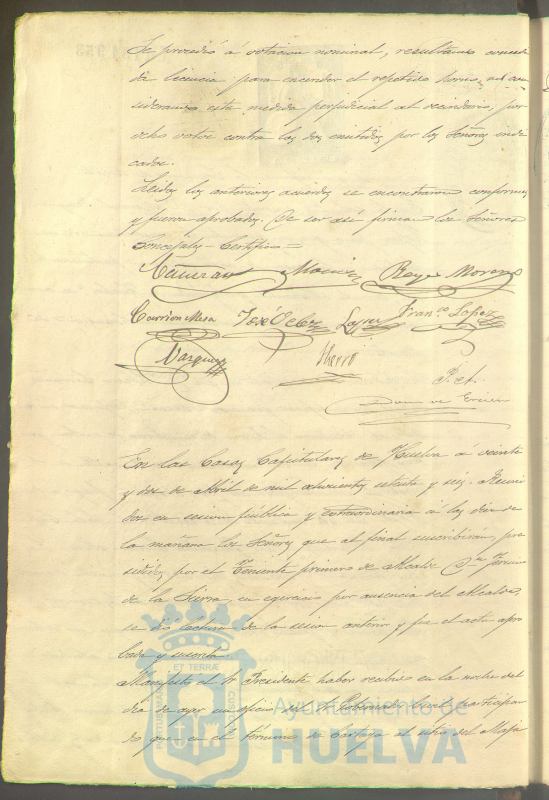 Se procedió á votacion nominal, resultando concedi
da licencia para encender el repetido horno, no con
siderando esta medida perjudicial al vecindario, por
ocho votos contra los dos emitidos por los Señores indi
cados.
Leidos los anteriores acuerdos se encontraron conformes
y fueron aprobados. De ser así firman los Señores
Concejales - Certifico =
Reyes Moreno
Carrion Mesa José Fran.co Lopez
Vazquez
P. A.
En las Casas Capitulares de Huelva á veinte
y dos de Abril de mil ochocientos setenta y seis. Reuni
dos en sesion pública y extraordinaria á las diez de
la mañana los Señores que al final suscribirán, pre
sididos por el Teniente primero de Alcalde Dn
de la Sierra, en ejercicio por ausencia del Alcalde
se dió lectura de la sesion anterior y fue el acta apro
bada y suscrita.
Manifestó el Sr Presidente haber recibido en la noche del
dia de ayer un oficio del Sr Gobernador Civil participan
do que en el término de Cartaya al sitio del
ET TERRÆ
PORTUS MARIS
CUSTODIA
Ayuntamiento de
HUELVA